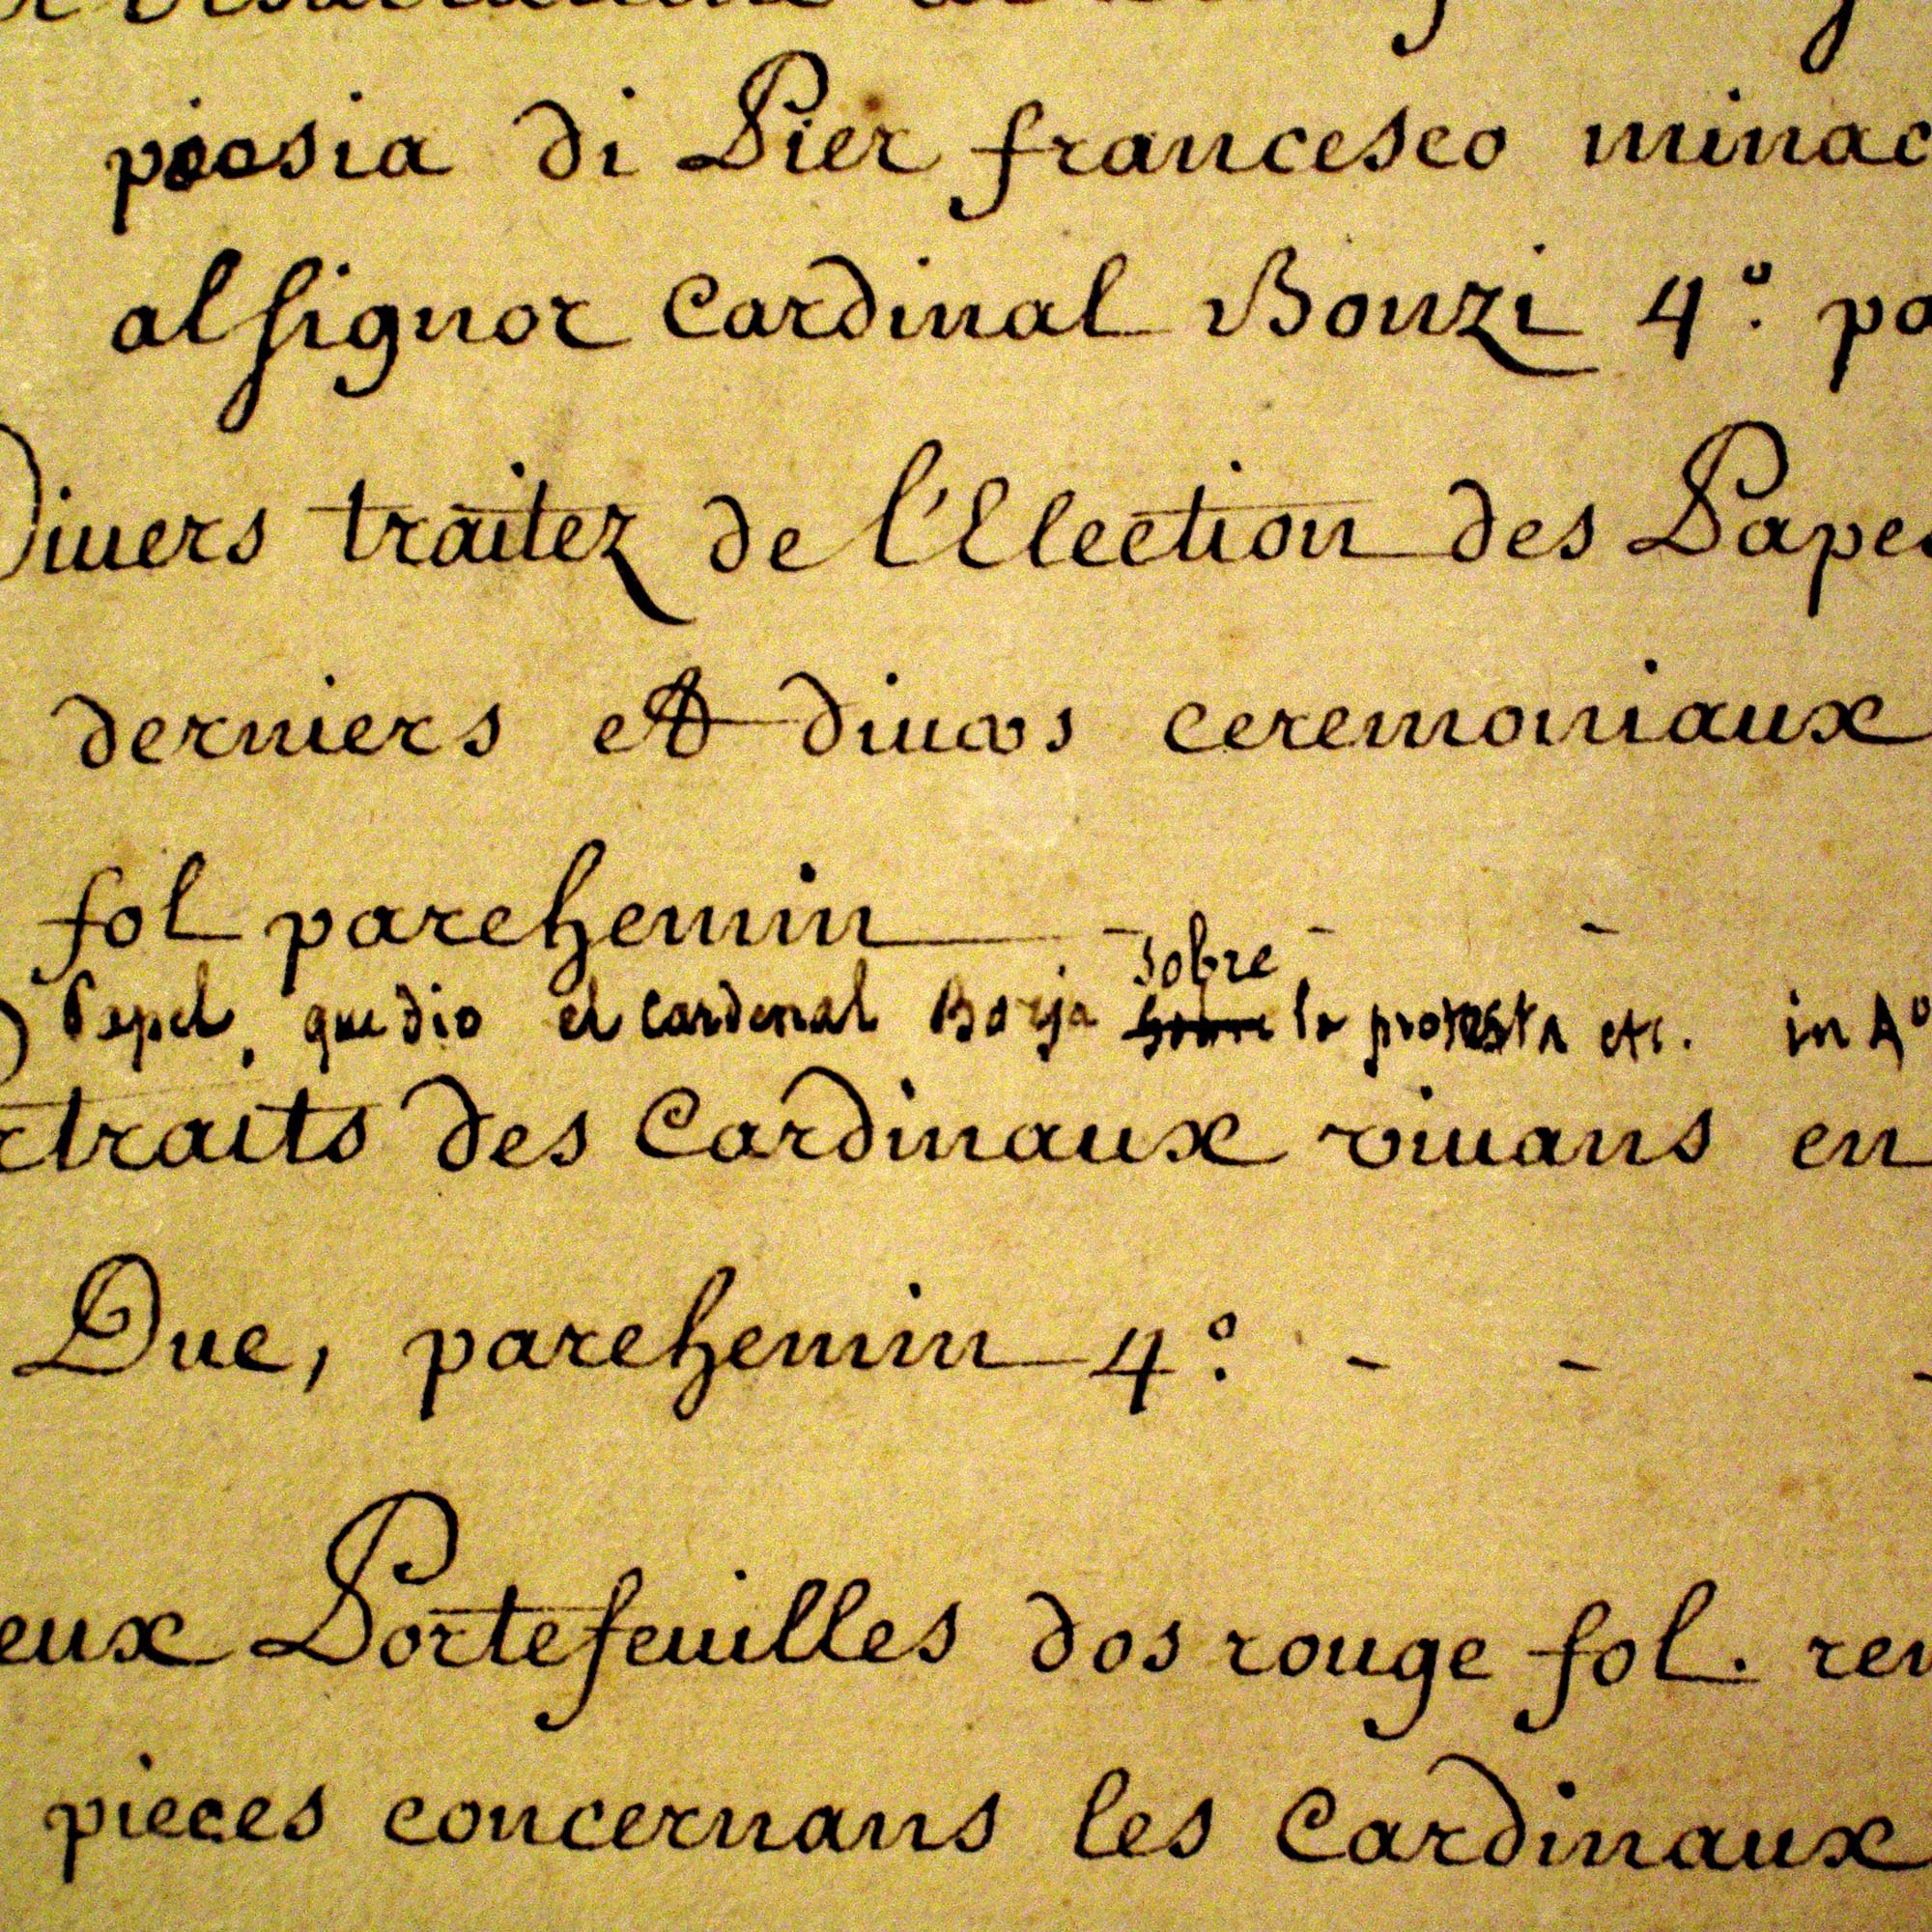 poesia di Pier francesco minac
al signor Cardinal Bonzi 4º. po
Divers traitez de l'Election des Papes
derniers et divers ceremoniaux
fol parchemin - - -
sobre
Papel que dio el cardenal Borja la protesta etc. in 4º
rtraits des Cardinaux vivans en
Due, parchemin 4º. - - -
eux Portefeuilles dos rouge fol. rem
pieces concernans les Cardinaux